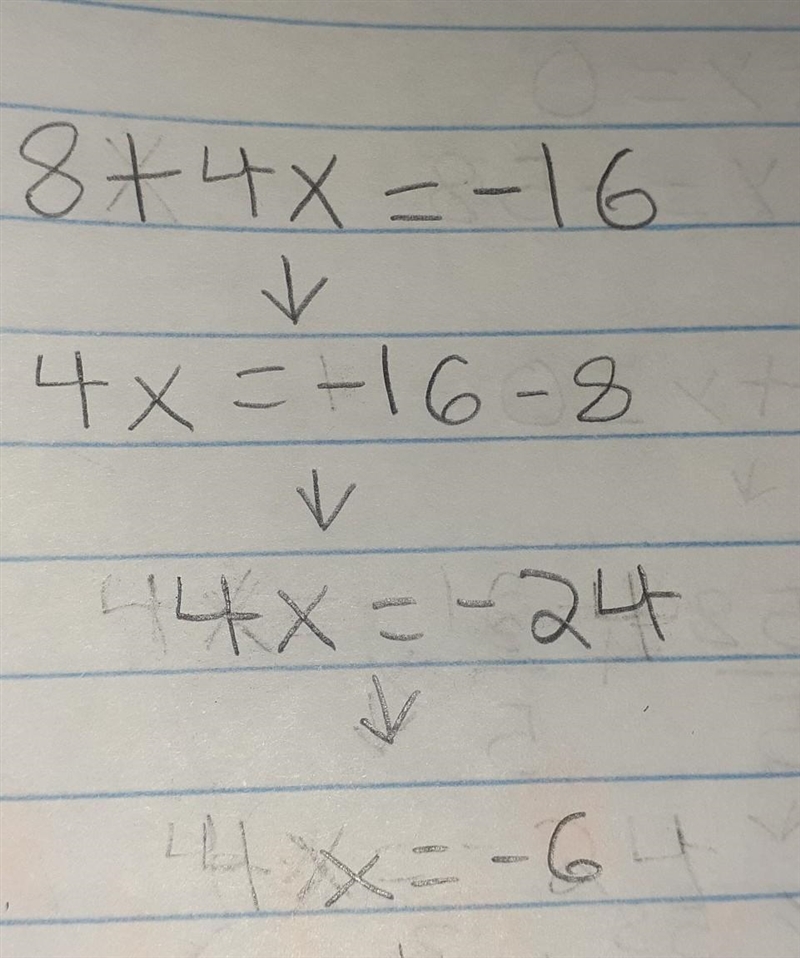 8+4x=-16
↓
4x=-16-8
↓
4x=-24
↓
x=-6